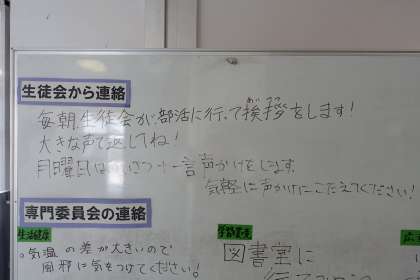 生徒会から連絡
毎朝、生徒会が部活に行って挨拶をします!
大きな声で返してね!
月曜日はあいさつ+一言声かけをします。
気軽に声かけにこたえてください!
専門委員会の連絡
生活健康
気温の差が大きいので
風邪に気をつけてください!
図書室に